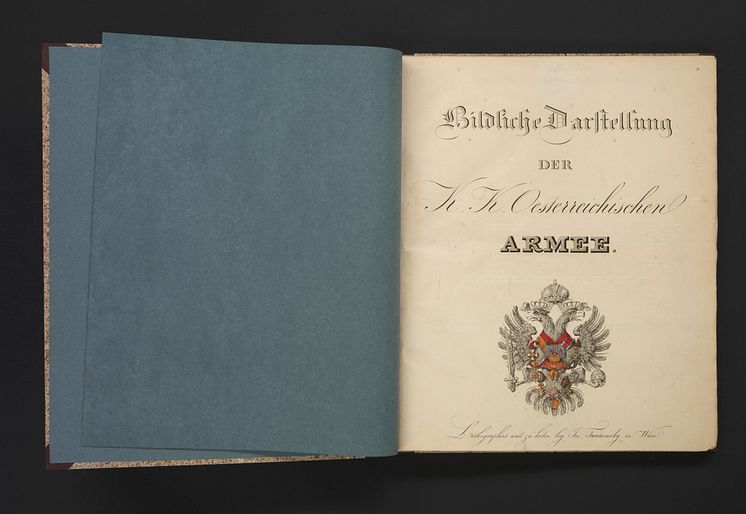 Bildliche Darstellung
DER
K. K. Oesterreichischen
ARMEE.
Lithographirt und zu haben bey Jos. Trentsensky in Wien